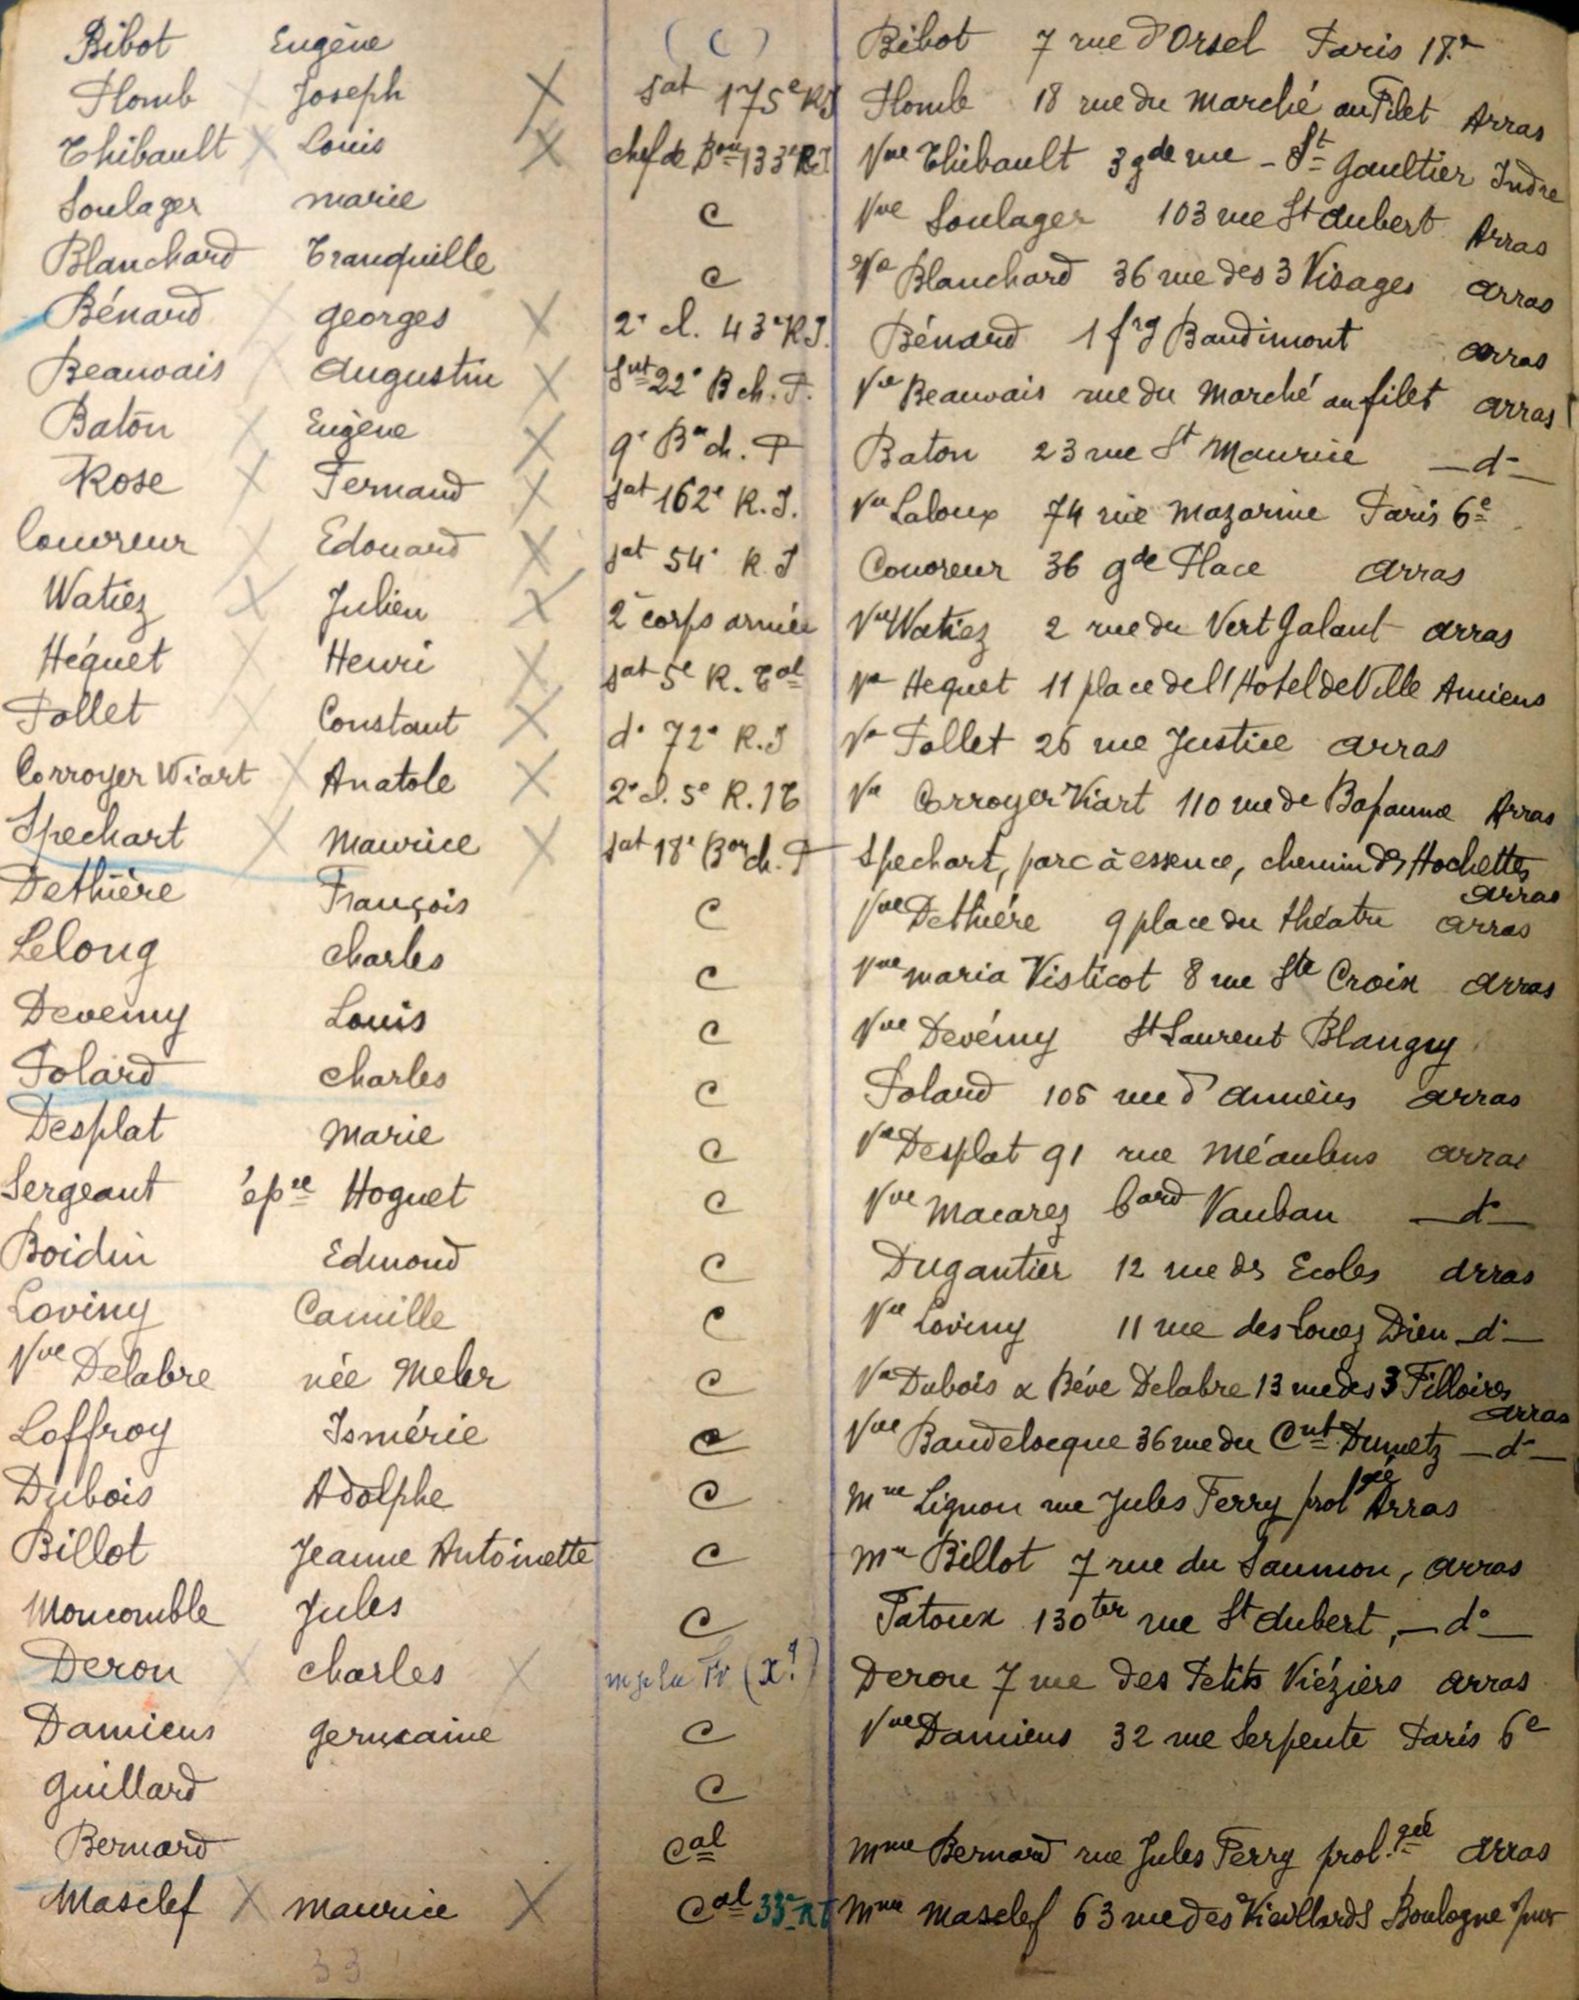 Bibot Eugène (C) Bibot 7 rue d'Orsel Paris 18e
Plomb X Joseph X sat 175e RI Plomb 18 rue du Marché au Filet Arras
Thibault X Louis X chef de Bon 133e RI Vve Thibault 3 gde rue - St Gaultier Indre
Soulager marie C Vve Soulager 103 rue St Aubert Arras
Blanchard Tranquille C Ve Blanchard 36 rue des 3 Visages arras
Bénard X georges X 2e cl. 43e RI. Bénard 1 fbg Baudimont arras
Beauvais X Augustin X 22e B ch. P. Ve Beauvais rue du Marché au filet arras
Baton X Eugène X 9e Bon ch. P Baton 23 rue St Maurice — do —
Rose X Fernand X sat 162e R.I. Ve Laloux 74 rue Mazarine Paris 6e
Couvreur X Edouard X sat 54e R.I Couvreur 36 gde Place arras
Watiez X Julien X 2e corps armée Vve Watiez 2 rue du Vert Galant arras
Héquet X Henri X sat 5e R. Tal Ve Hequet 11 place de l'Hotel de Ville Amiens
Pollet X Constant X do 72e R.I Ve Pollet 26 rue Justice arras
Corroyer Wiart X Anatole X 2e cl. 5e R. IT Ve Corroyer Viart 110 rue de Bapaume Arras
Spechart X Maurice X sat 18e Bon ch. P Spechart, parc à essence, chemin des Hochettes
arras
Dethière François C Vve Dethière 9 place du théatre arras
Lelong charles C Vve maria Visticot 8 rue Ste Croix arras
Devemy Louis C Vve Devémy St Laurent Blangy
Polard charles C Polard 105 rue d'amiens arras
Desplat Marie C Ve Desplat 91 rue Méaulens arras
Sergeant épse Hoguet C Vve Macarez bard Vauban — do —
Boidin Edmond C Dugautier 12 rue des Ecoles arras
Loviny Camille C Ve Loviny 11 rue des Louez Dieu — do —
Vve Delabre née C Ve Dubois & Delabre 13 rue des 3 Filloires
arras
Loffroy Ismérie C Vve Baudelocque 36 rue du Cnt Dumetz — do —
Dubois Adolphe C Mme Lignon rue Jules Ferry prolgée Arras
Billot Jeanne Antoinette C Mme Billot 7 rue du Saumon, arras
Moncomble Jules C Patoux 130ter rue St Aubert, — do —
Deron X charles X Deron 7 rue des Petits Viéziers arras
Damiens germaine C Vve Damiens 32 rue Serpente Paris 6e
Guillard C
Bernard Cal Mme Bernard rue Jules Ferry prol.gée arras
Masclef X Maurice X Cal 33e RI Mme Masclef 63 rue des Vieillards Boulogne s/mer
33